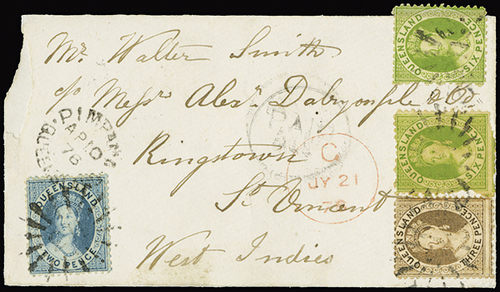 Mr. Walter Smith
c/o Messrs Alexr. Dalrymple & Co
Kingstown
St Vincent
West Indies
QUEENSLAND
SIX PENCE
QUEENSLAND
SIX PENCE
QUEENSLAND
THREE PENCE
QUEENSLAND
TWO PENCE
AP 10
76
C
JY 21